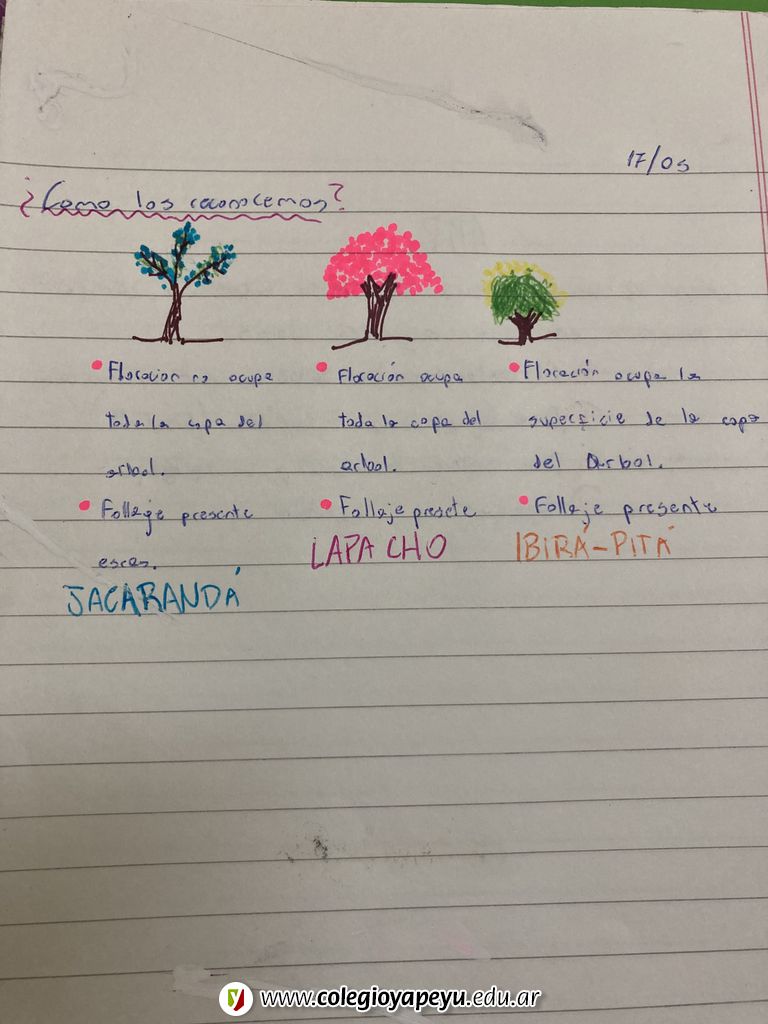 17/05
¿Como los reconocemos?
• Floracion no ocupa
toda la copa del
arbol.
• Follage presente
escas.
JACARANDÁ
• Floración ocupa
toda la copa del
arbol.
• Follaje presete
LAPACHO
• Floración ocupa la
superficie de la copa
del Arbol.
• Follaje presente
IBIRÁ-PITÁ
www.colegioyapeyu.edu.ar